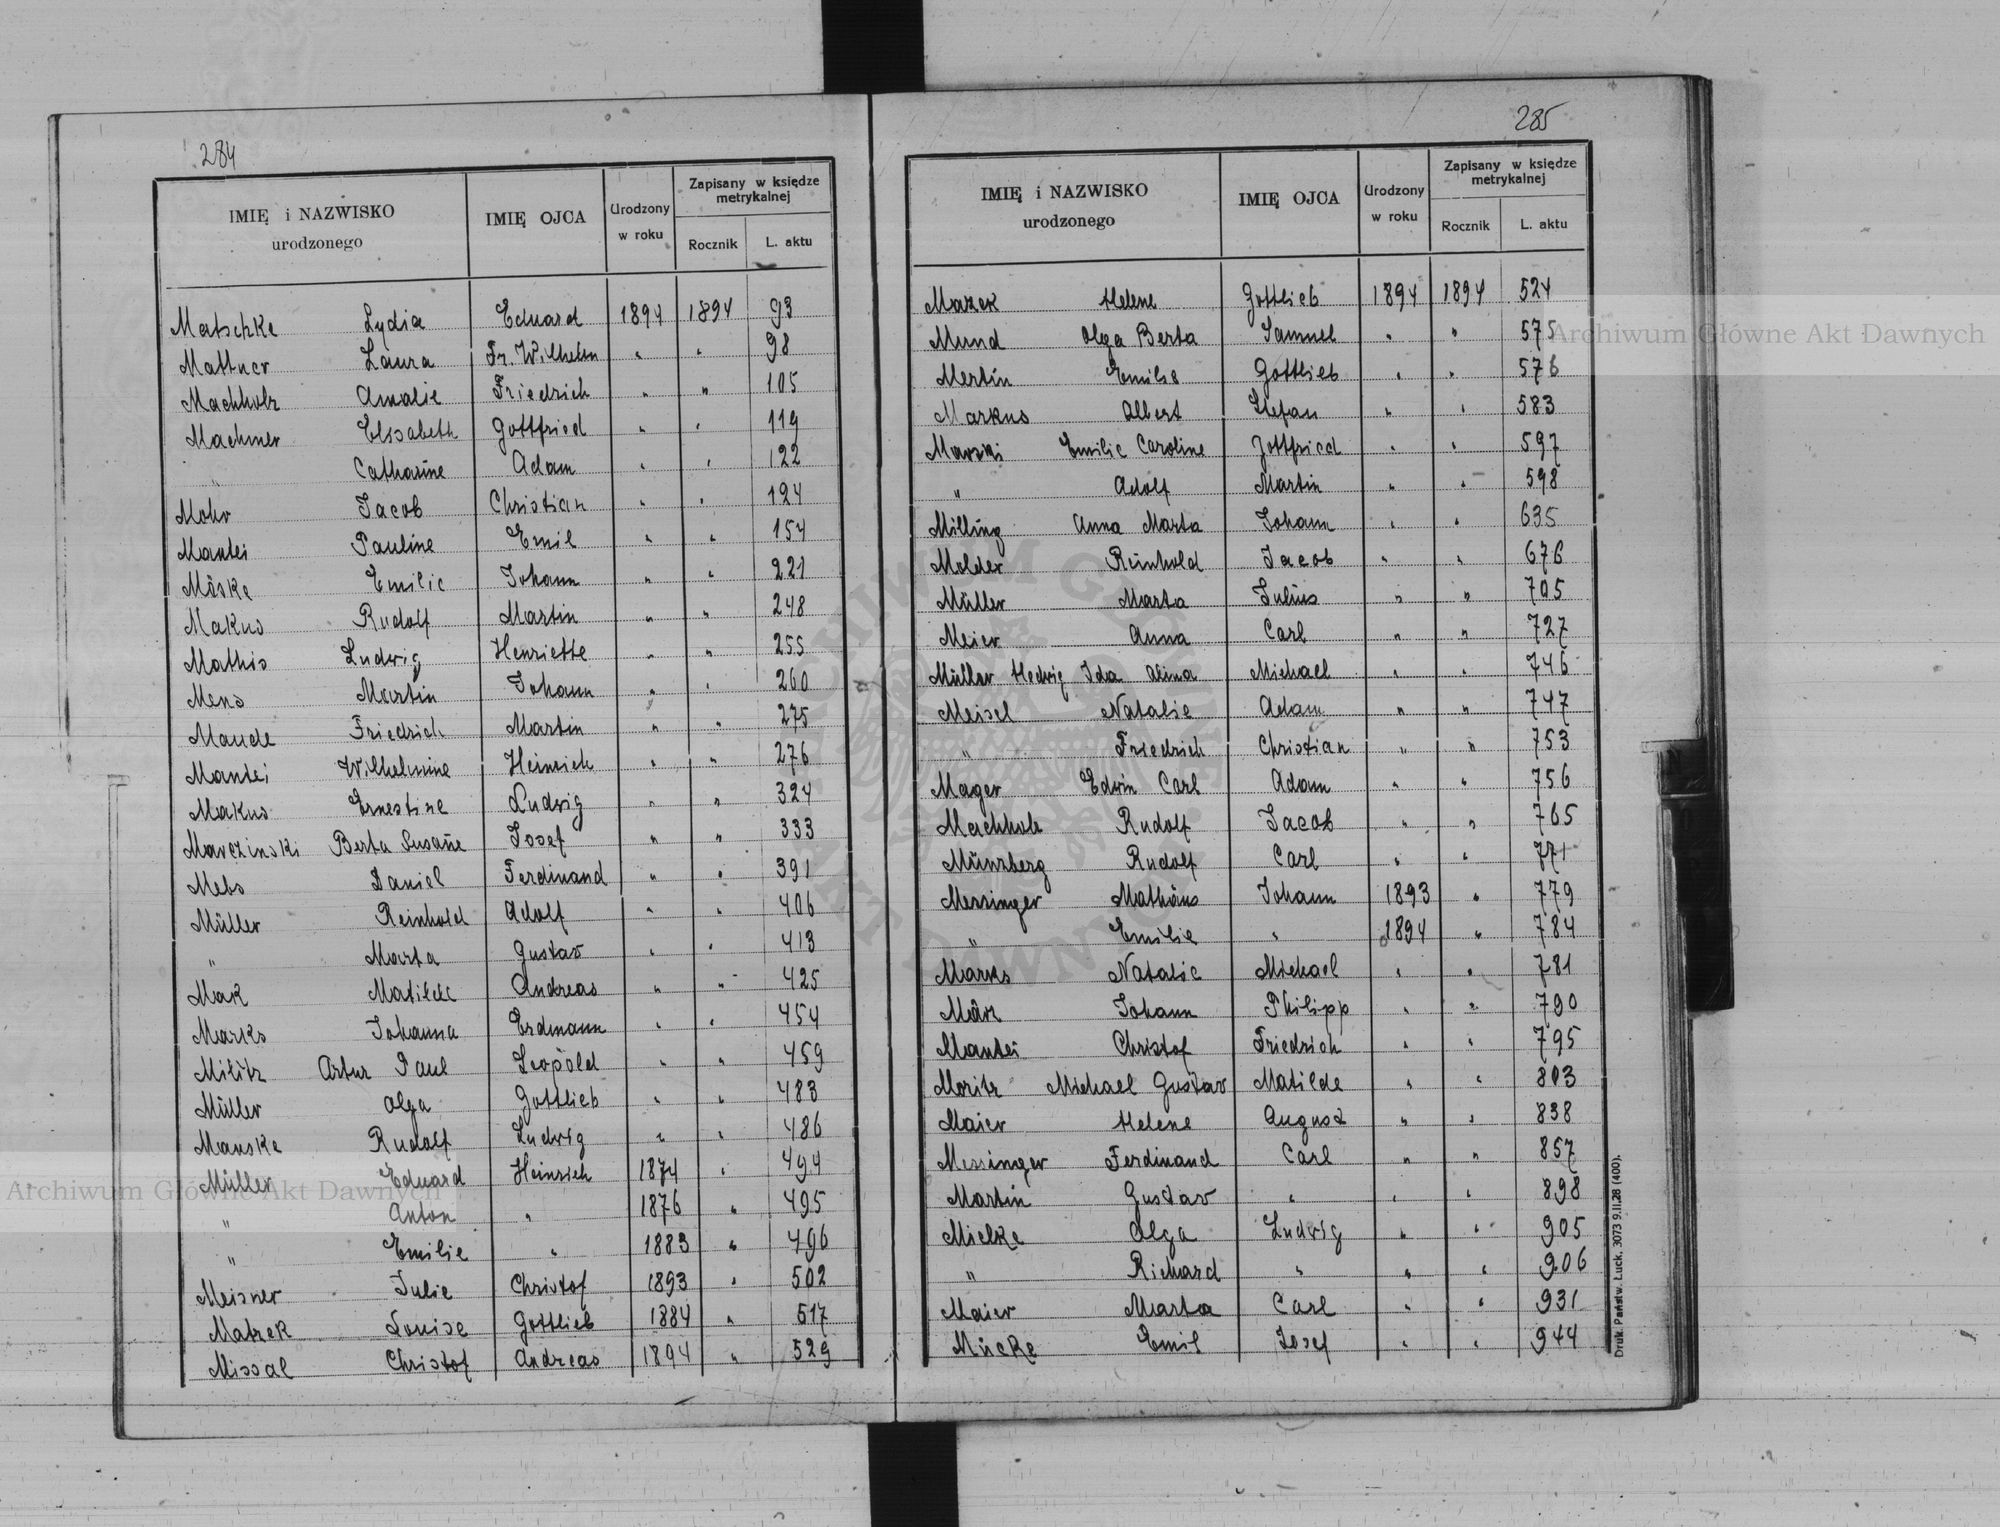 284
IMIĘ i NAZWISKO urodzonego IMIĘ OJCA Urodzony w roku Zapisany w księdze metrykalnej Rocznik L. aktu
Matschke Lydia Eduard 1894 1894 93
Mattner Laura Fr. Wilhelm " " 98
Machholz Amalie Friedrich " " 105
Machmer Elisabeth Gottfried " " 119
" Catharine Adam " " 122
Mohr Jacob Christian " " 124
Mantei Pauline Emil " " 154
Möske Emilie Johann " " 221
Makus Rudolf Martin " " 248
Mathis Ludwig Henriette " " 255
Mens Martin Johann " " 260
Maude Friedrich Martin " " 275
Mantei Wilhelmine Heinrich " " 276
Makus Ernestine Ludwig " " 324
Marczinski Berta Susañe Josef " " 333
Mebs Daniel Ferdinand " " 391
Müller Reinhold Adolf " " 406
" Marta Gustav " " 413
Mak Matilde Andreas " " 425
Marks Johanna Erdmann " " 454
Militz Artur Paul Leopold " " 459
Müller Olga Gottlieb " " 483
Manske Rudolf Ludwig " " 486
Müller Eduard Heinrich 1874 " 494
" Anton " 1876 " 495
" Emilie " 1883 " 496
Meisner Julie Christof 1893 " 502
Matzek Louise Gottlieb 1884 " 517
Missal Christof Andreas 1894 " 529
285
IMIĘ i NAZWISKO urodzonego IMIĘ OJCA Urodzony w roku Zapisany w księdze metrykalnej Rocznik L. aktu
Mazek Helene Gottlieb 1894 1894 524
Mund Olga Berta Samuel " " 575
Mertin Emilie Gottlieb " " 576
Markus Albert Stefan " " 583
Marski Emilie Caroline Gottfried " " 597
" Adolf Martin " " 598
Milling Anna Marta Johann " " 635
Molder Reinhold Jacob " " 676
Müller Marta Julius " " 705
Meier Anna Carl " " 727
Müller Hedwig Ida Alina Michael " " 746
Meisel Natalie Adam " " 747
" Friedrich Christian " " 753
Mager Edwin Carl Adam " " 756
Machholz Rudolf Jacob " " 765
Münzberg Rudolf Carl " " 771
Messinger Mathäus Johann 1893 " 779
" Emilie " 1894 " 784
Marks Natalie Michael " " 781
März Johann Philipp " " 790
Mantei Christof Friedrich " " 795
Moritz Michael Gustav Matilde " " 803
Maier Helene August " " 838
Messinger Ferdinand Carl " " 857
Martin Gustav " " " 898
Mielke Olga Ludwig " " 905
" Richard " " " 906
Maier Marta Carl " " 931
Mücke Emil Josef " " 944
Druk. Państw. Łuck. 3073 9.II.28 (400).
Archiwum Główne Akt Dawnych
Archiwum Główne Akt Dawnych
ARCHIWUM GŁÓWNE AKT DAWNYCH